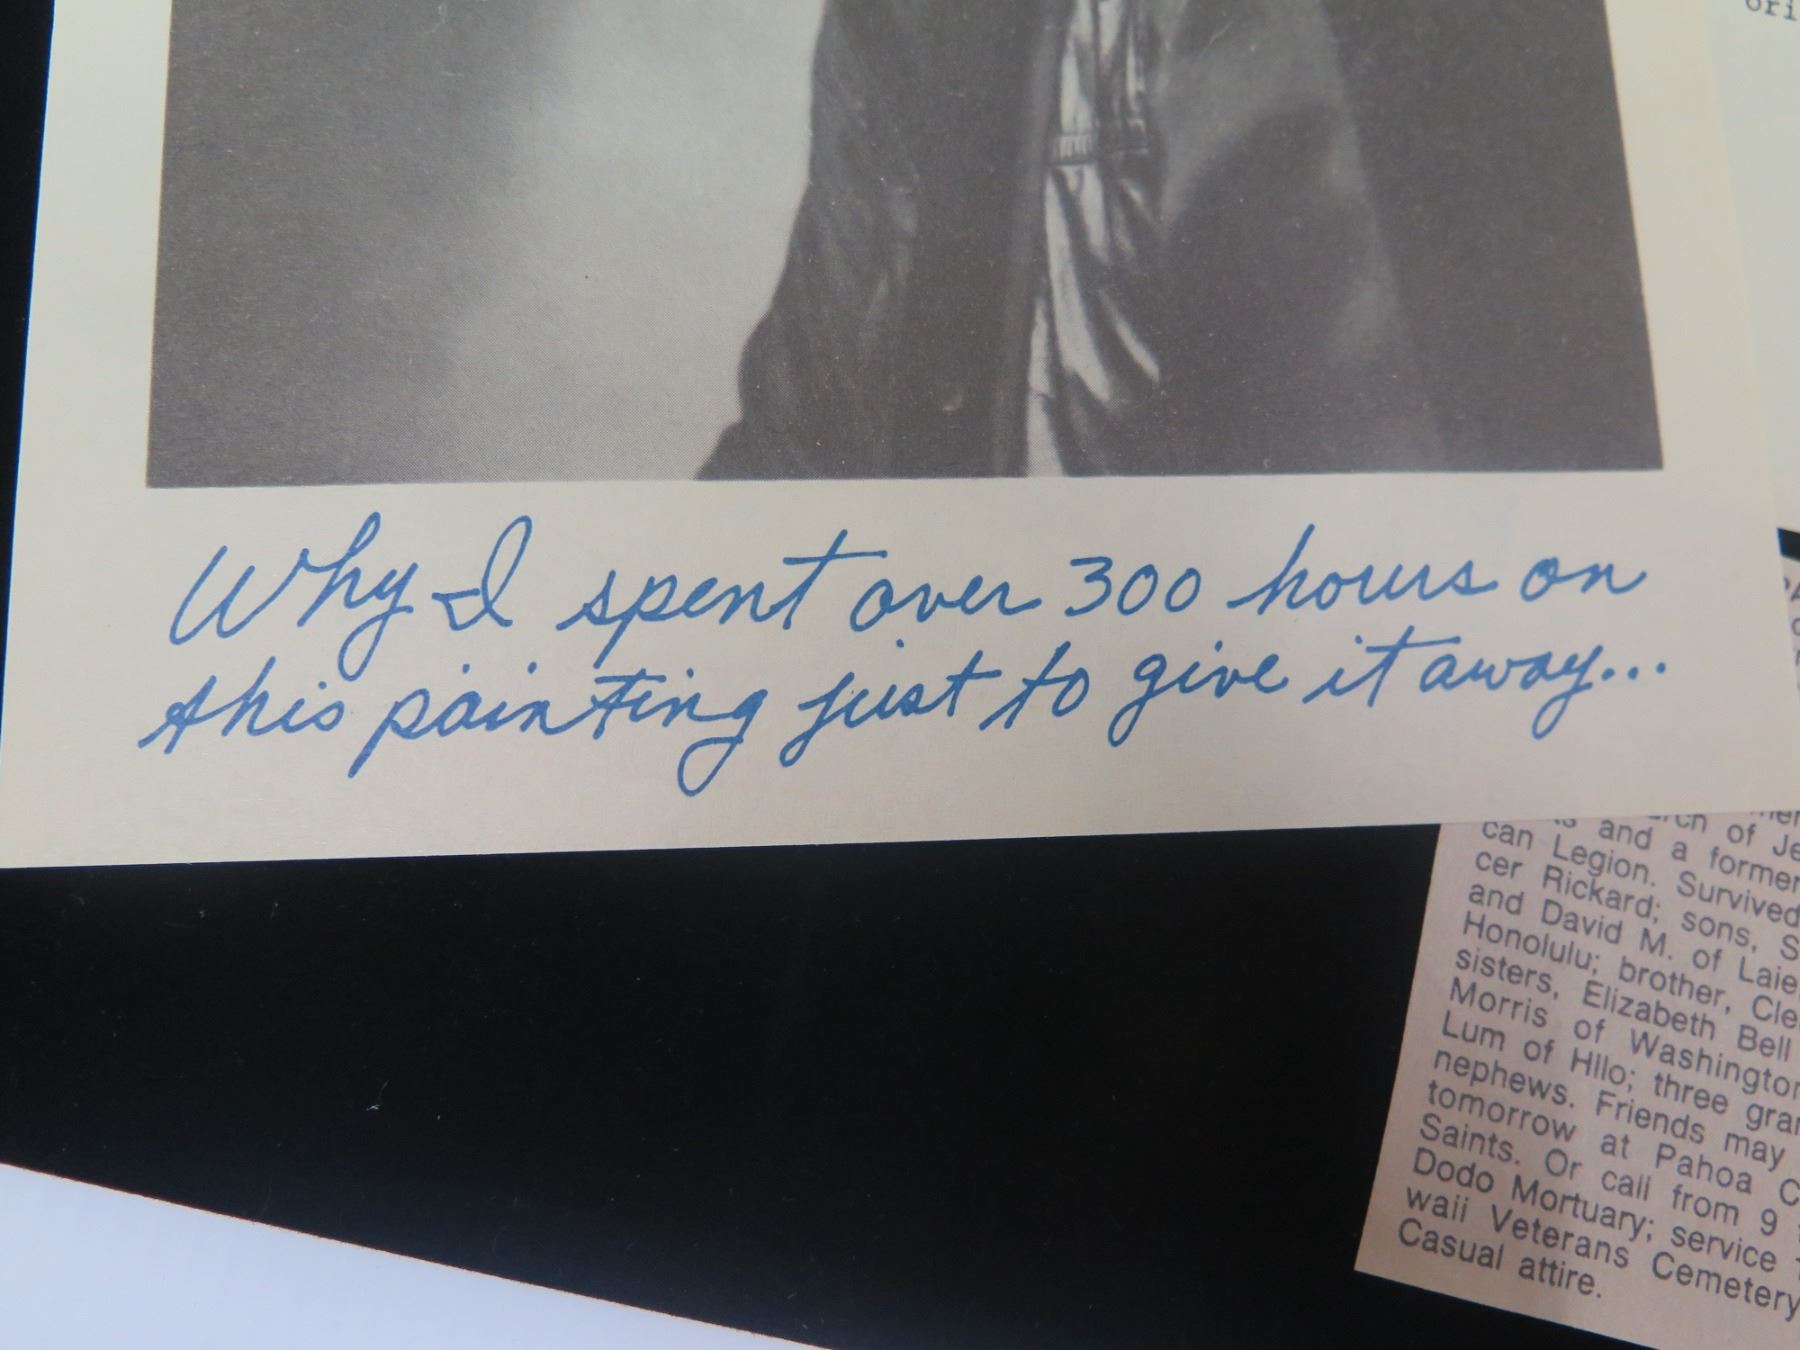 ori
Why I spent over 300 hours on
this painting just to give it away...
and a former
can Legion. Survived
cer Rickard; sons, S
and David M. of Laie
Honolulu; brother, Cle
sisters, Elizabeth Bell
Morris of Washington
Lum of Hilo; three gran
nephews. Friends may
tomorrow at Pahoa C
Saints. Or call from 9
Dodo Mortuary; service
waii Veterans Cemetery
Casual attire.